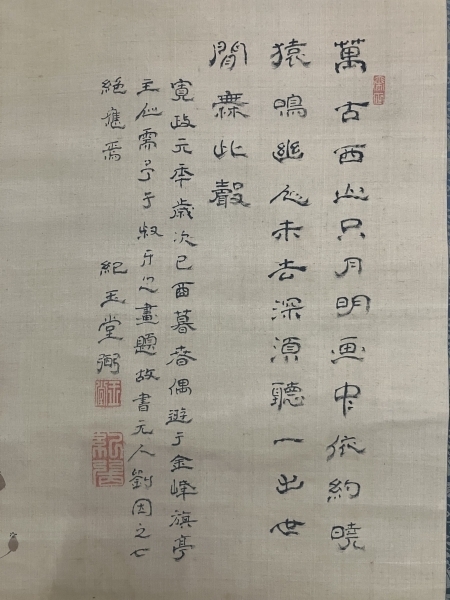 萬古西山只月明画中依約曉
猿鳴幽人未去深須聽一出世
間無此聲
寛政元年歳次己酉暮春偶遊于金峰旗亭
主人需予于叔斤之畫題故書元人劉因之七
絶應焉 紀玉堂弼